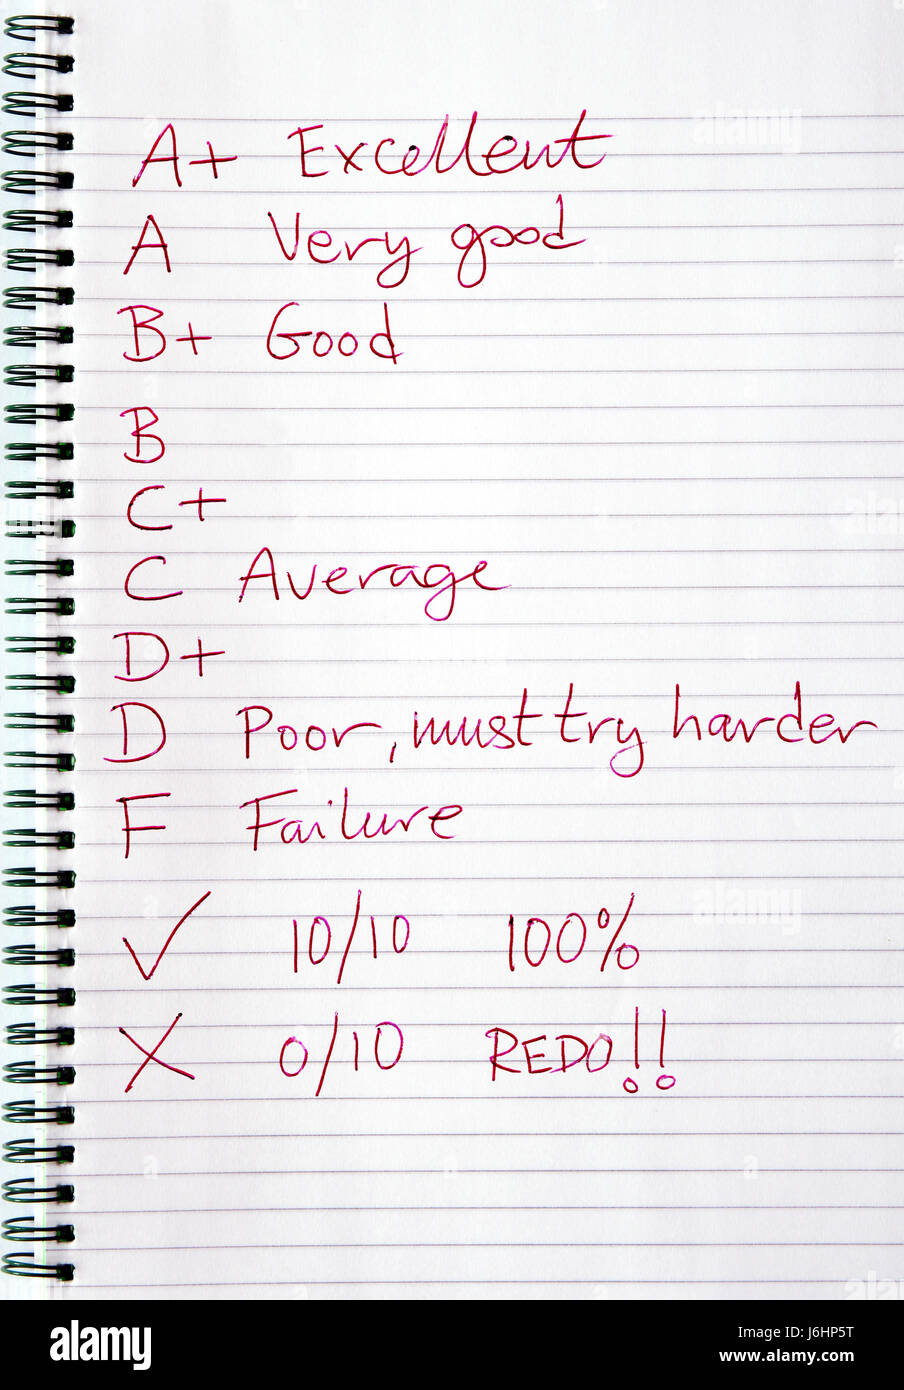 A+ Excellent
A Very good
B+ Good
B
C+
C Average
D+
D Poor, must try harder
F Failure
✓ 10/10 100%
X 0/10 REDO!!
alamy
Image ID: J6HP5T
www.alamy.com